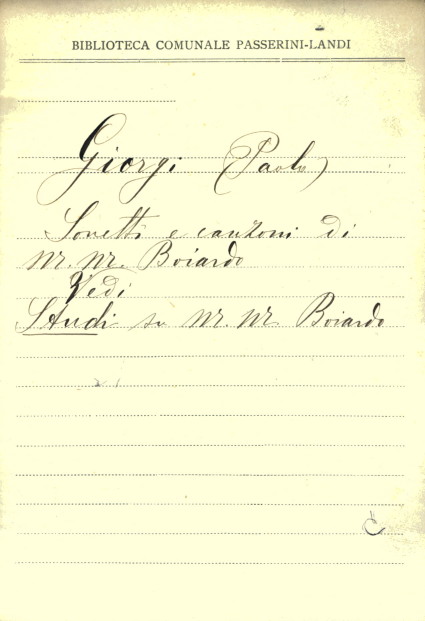 BIBLIOTECA COMUNALE PASSERINI-LANDI
Giorgi (Paolo)
Sonetti e canzoni di
M. M. Boiardo
Vedi
Studi su M. M. Boiardo
C